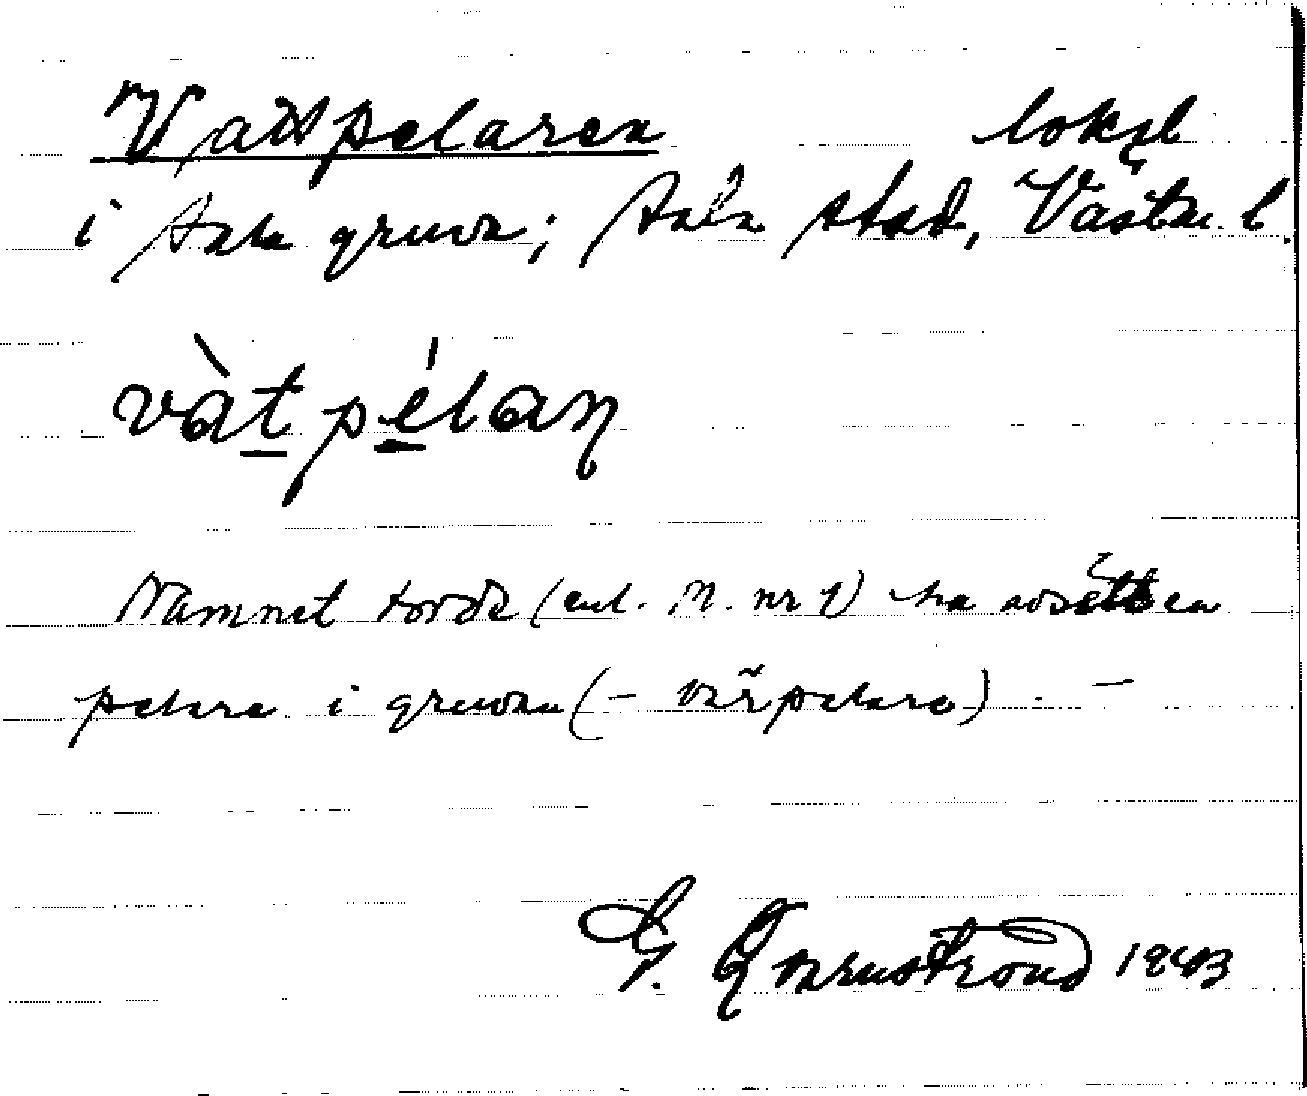 Vattpelaren lokal
i Sala gruva; Sala stad, Västm. l.
vàt pélaṇ
Namnet torde (enl. M. nr 1) ha avsett en
pelare i gruvan (- vaňpelare). -
G. Qvarnström 1943